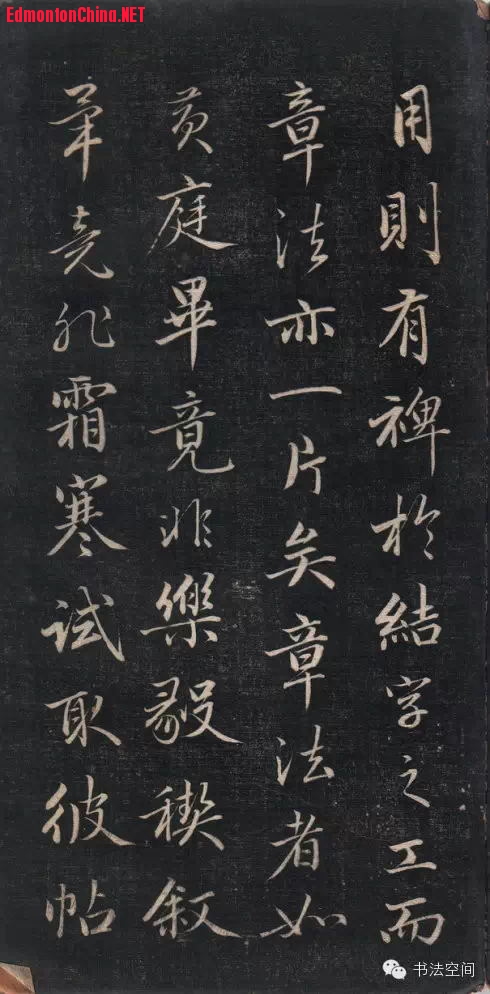 EdmontonChina.NET
用則有裨於結字之工而
章法亦一片矣章法者如
黃庭畢竟非樂毅稧叙
畢竟非霜寒試取彼帖
书法空间